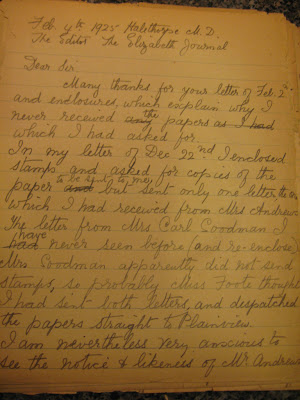 Feb. 4th 1925 Halethorpe M.D.
The Editor The Elizabeth Journal
Dear Sir.
Many thanks for your letter of Feb. 2nd
and enclosures, which explain why I
never received the papers as I had
which I had asked for.
In my letter of Dec 22nd I enclosed
stamps and asked for copies of the
paper to be sent to me, but sent only one letter, the one
which I had received from Mrs Andrews
The letter from Mrs Carl Goodman I
have had never seen before (and re-enclose)
Mrs. Goodman apparently did not send
stamps, so probably Miss Foote thought
I had sent both letters, and despatched
the papers straight to Plainview.
I am nevertheless very anxious to
see the notice & likeness of Mr. Andrews